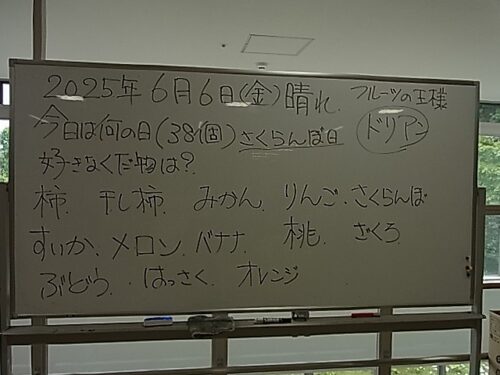 2025年6月6日(金)晴れ.
フルーツの王様
ドリアン
今日は何の日(38個)さくらんぼ日
好きなくだ物は?
柿. 干し柿. みかん. りんご. さくらんぼ
すいか. メロン. バナナ. 桃. ざくろ
ぶどう. はっさく. オレンジ